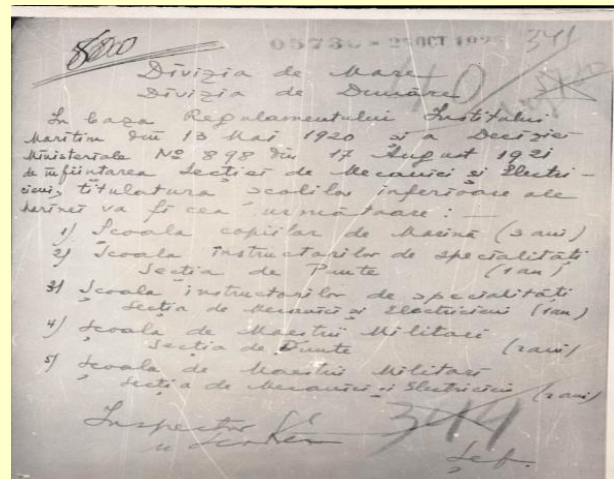 8000
05736 - 2 OCT 192
341
40
Divizia de Mare
Divizia de Dunăre
In baza Regulamentului Institului
Maritim din 13 Mai 1920 și a Deciziei
Ministeriale Nº 898 din 17 August 1921
de înființarea Secției de Mecanici și Electri-
cieni, titulatura școlilor inferioare ale
Marinei va fi cea următoare: —
1) Școala copiilor de Marină (3 ani)
2) Școala instructorilor de specialități
Secția de Punte (1 an)
3) Școala instructorilor de specialități
Secția de Mecanici și Electricieni (1 an)
4) Școala de Maeștrii Militari
Secția de Punte (2 ani)
5) Școala de Maeștrii Militari
Secția de Mecanici și Electricieni (2 ani)
Inspector
344
Șef.